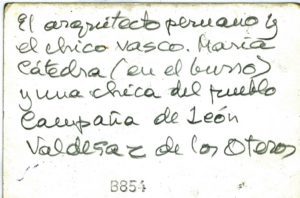 El arquitecto peruano y
el chico vasco. María
Cátedra (en el burro)
y una chica del pueblo
Campaña de León
Valdesaz de los Oteros
B854